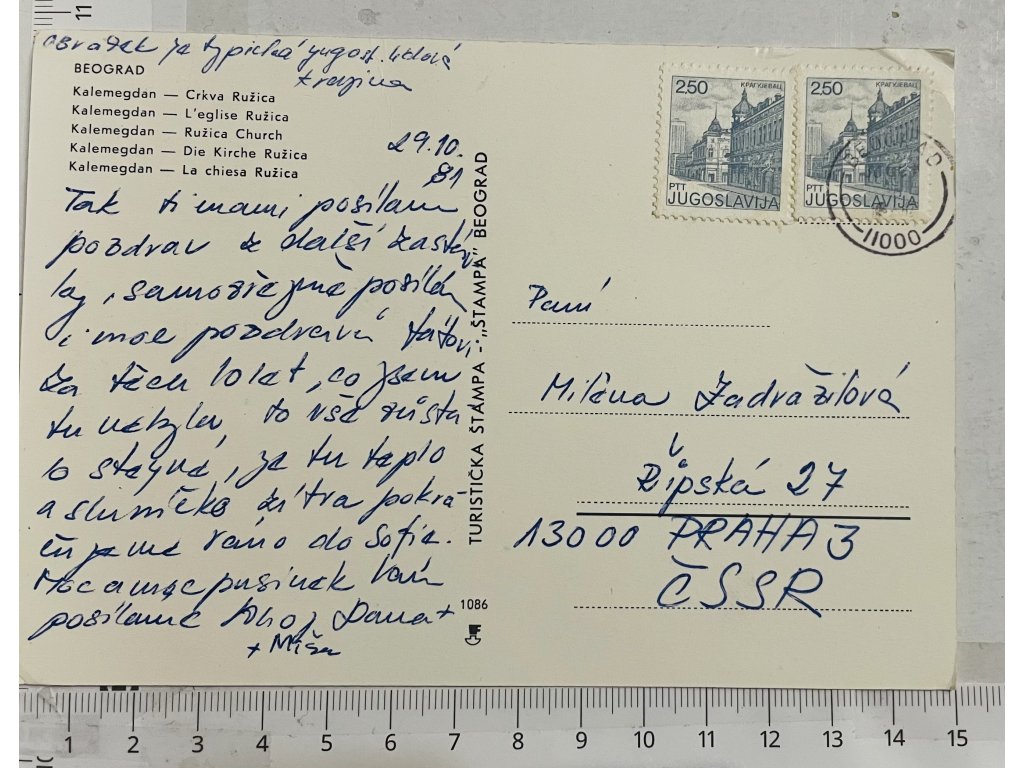 obrázek je typická jugosl. lidová
krajina
BEOGRAD
Kalemegdan — Crkva Ružica
Kalemegdan — L'eglise Ružica
Kalemegdan — Ružica Church
Kalemegdan — Die Kirche Ružica
Kalemegdan — La chiesa Ružica
29.10.
81
Tak ti mami posílám
pozdrav z další zastáv
ky, samozřejmě posílám
i moc pozdravů tátovi
Za těch 10 let, co jsem
tu nebyla, to vše zůsta
lo stejné, je tu teplo
a sluníčko zítra pokra-
čujeme ráno do Sofie.
Moc a moc pusinek Vám
posíláme Ahoj Dana +
+ Míša
TURISTIČKA ŠTAMPA - „ŠTAMPA" BEOGRAD
1086
2,50
КРАГУЈЕВАЦ
PTT
JUGOSLAVIJA
2,50
КРАГУЈЕВАЦ
PTT
JUGOSLAVIJA
11000
Paní
Miléna Zadražilová
Řipská 27
13000 PRAHA 3
ČSSR
11
1 2 3 4 5 6 7 8 9 10 11 12 13 14 15